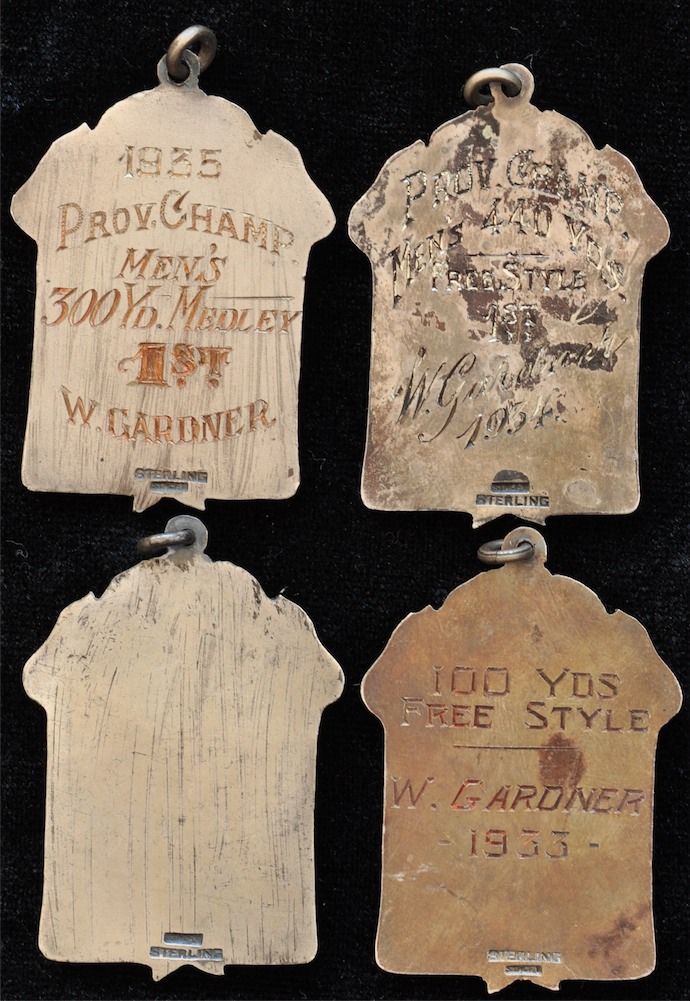 1935
PROV. CHAMP.
MEN'S
300 YD. MEDLEY
1ST
W. GARDNER
STERLING
PROV. CHAMP.
MEN'S 440 YDS.
FREE STYLE
1ST
W. Gardner
1934.
STERLING
STERLING
100 YDS
FREE STYLE
W. GARDNER
- 1933 -
STERLING